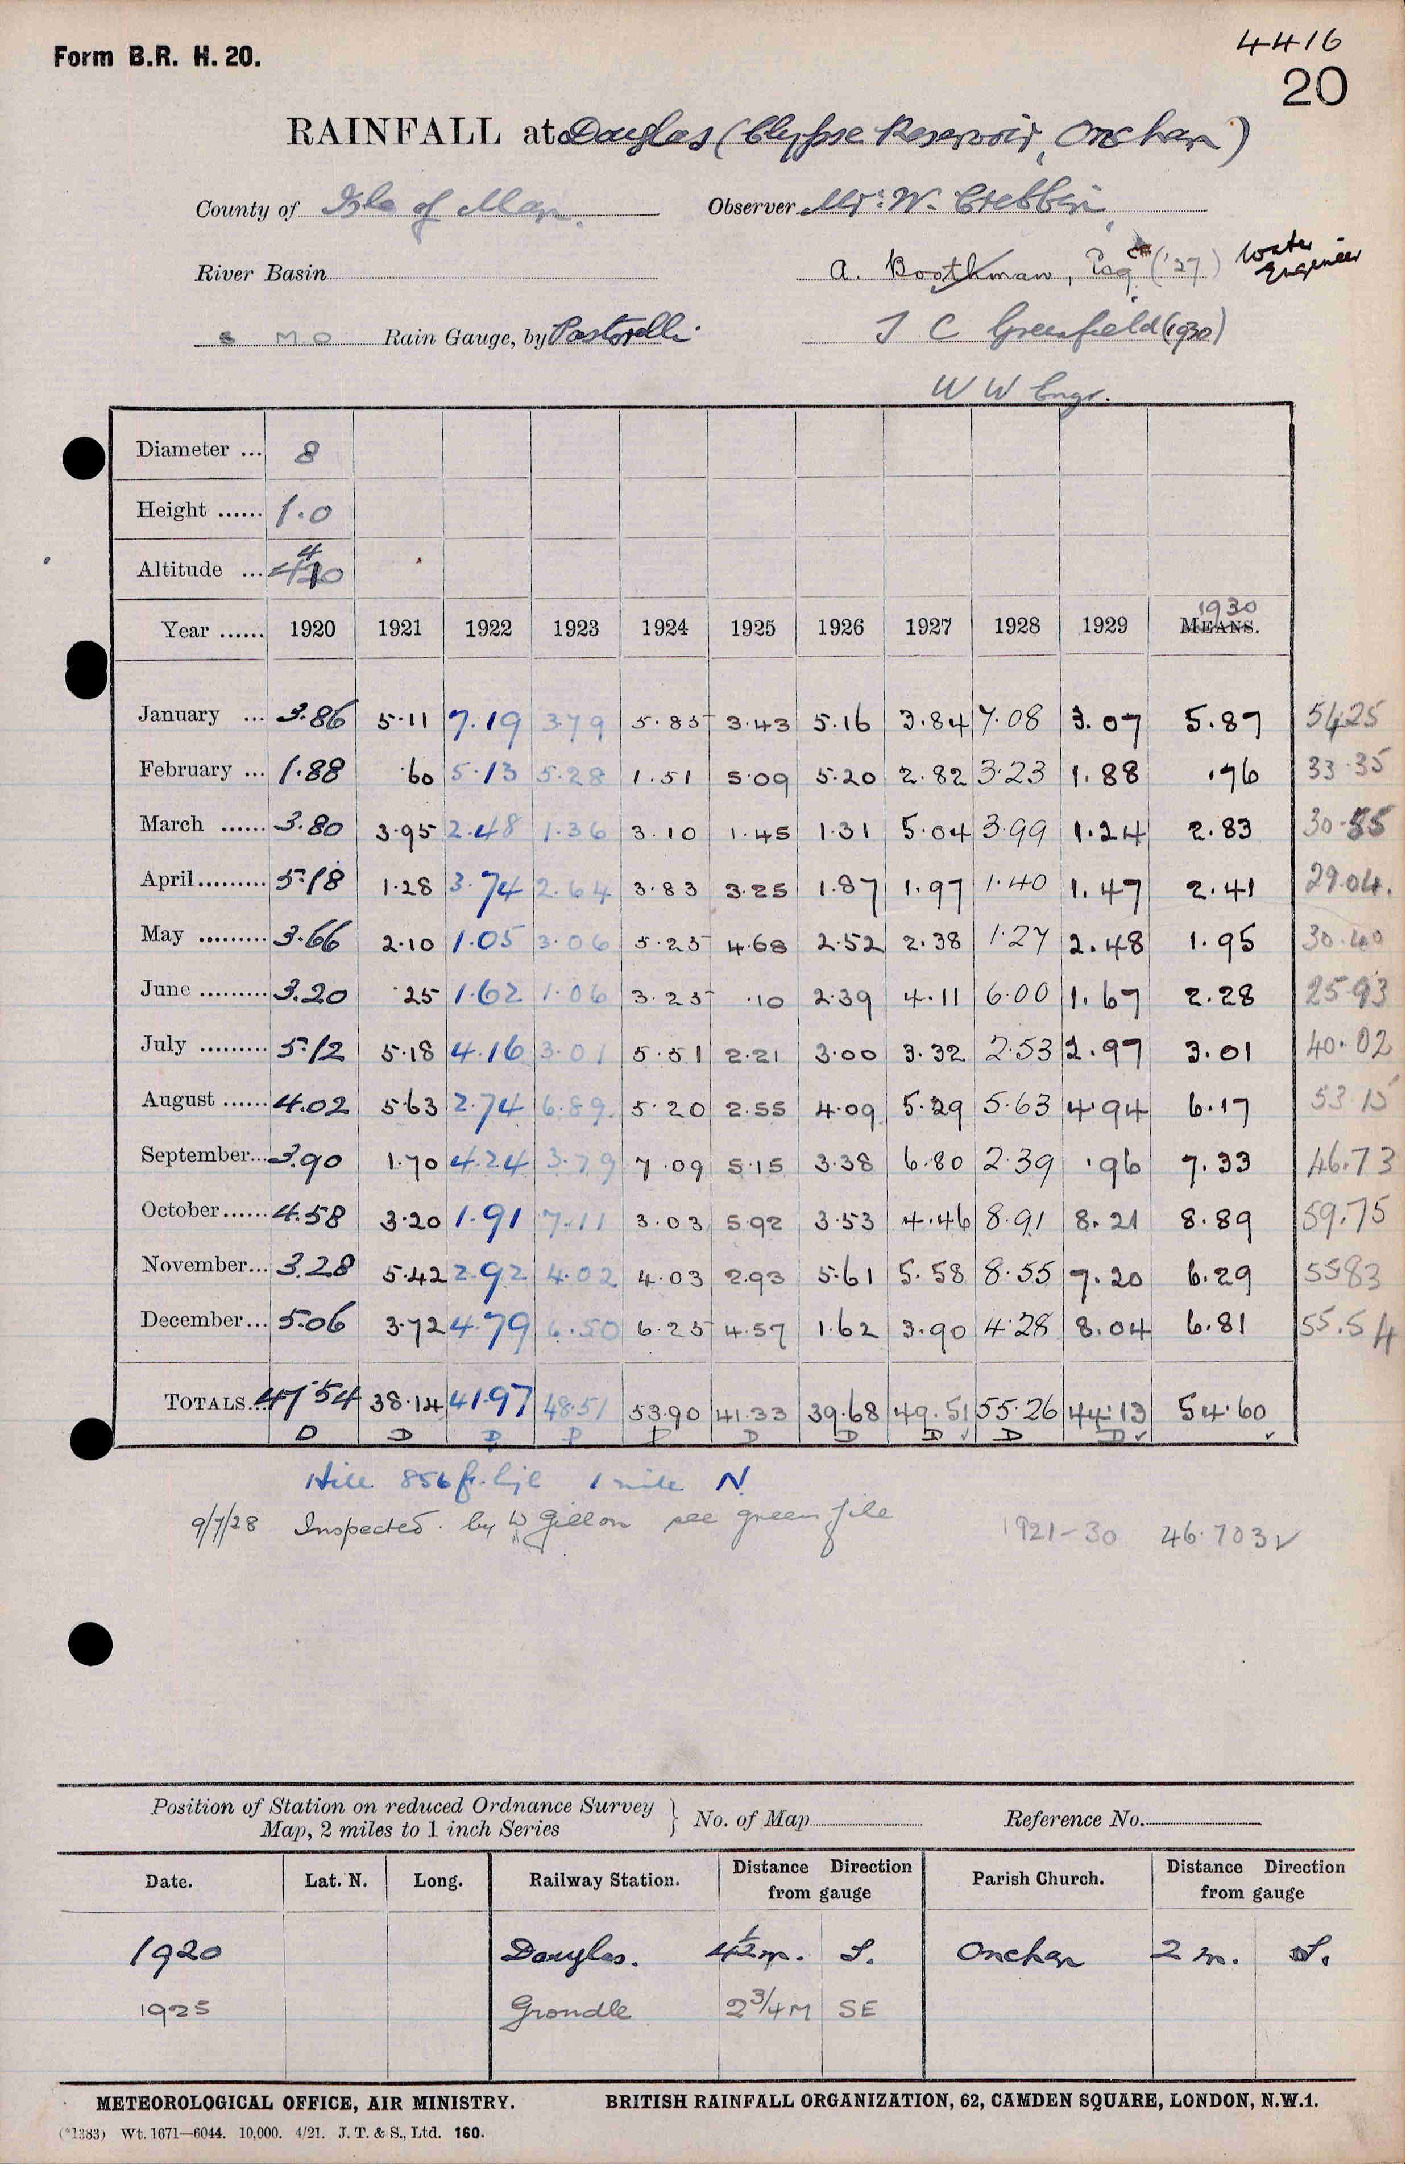 Form B.R. H. 20.
4416
20
RAINFALL at Douglas (Clypse Reservoir, Onchan)
County of Isle of Man. Observer Mr. W. Crebbin
River Basin A. Boothman, Esq ('27) Water Engineer
8 M O Rain Gauge, by Pastorelli J C Greenfield (1930)
W W Engr.
Diameter ... 8
Height ...... 1.0
Altitude ...
Year ...... 1920 1921 1922 1923 1924 1925 1926 1927 1928 1929 MEANS. 1930
January ... 3.86 5.11 7.19 3.79 5.85 3.43 5.16 3.84 7.08 3.07 5.87 54.25
February ... 1.88 .60 5.13 5.28 1.51 5.09 5.20 2.82 3.23 1.88 .76 33.35
March ...... 3.80 3.95 2.48 1.36 3.10 1.45 1.31 5.04 3.99 1.24 2.83 30.55
April......... 5.18 1.28 3.74 2.64 3.83 3.25 1.87 1.97 1.40 1.47 2.41 29.04.
May ......... 3.66 2.10 1.05 3.06 5.25 4.68 2.52 2.38 1.27 2.48 1.95 30.40
June ......... 3.20 .25 1.62 1.06 3.25 .10 2.39 4.11 6.00 1.67 2.28 25.93
July ......... 5.12 5.18 4.16 3.01 5.51 2.21 3.00 3.32 2.53 2.97 3.01 40.02
August ...... 4.02 5.63 2.74 6.89 5.20 2.55 4.09 5.29 5.63 4.94 6.17 53.15
September... 3.90 1.70 4.24 3.79 7.09 5.15 3.38 6.80 2.39 .96 7.33 46.73
October...... 4.58 3.20 1.91 7.11 3.03 5.92 3.53 4.46 8.91 8.21 8.89 59.75
November... 3.28 5.42 2.92 4.02 4.03 2.93 5.61 5.58 8.55 7.20 6.29 55.83
December... 5.06 3.72 4.79 6.50 6.25 4.57 1.62 3.90 4.28 8.04 6.81 55.54
TOTALS... 47.54 38.14 41.97 48.51 53.90 41.33 39.68 49.51 55.26 44.13 54.60
D D D D D D D D D
Hill 856 ft. 1 mile N.
9/7/28 Inspected by W Gillon see green file 1921-30 46.703 ✓
Position of Station on reduced Ordnance Survey Map, 2 miles to 1 inch Series } No. of Map Reference No.
Date. Lat. N. Long. Railway Station. Distance Direction from gauge Parish Church. Distance Direction from gauge
1920 Douglas. 4½ m. S. Onchan 2 m. S.
1925 Groudle 2¾ M SE
METEOROLOGICAL OFFICE, AIR MINISTRY. BRITISH RAINFALL ORGANIZATION, 62, CAMDEN SQUARE, LONDON, N.W.1.
(*1383) Wt. 1671—6044. 10,000. 4/21. J. T. & S., Ltd. 160.